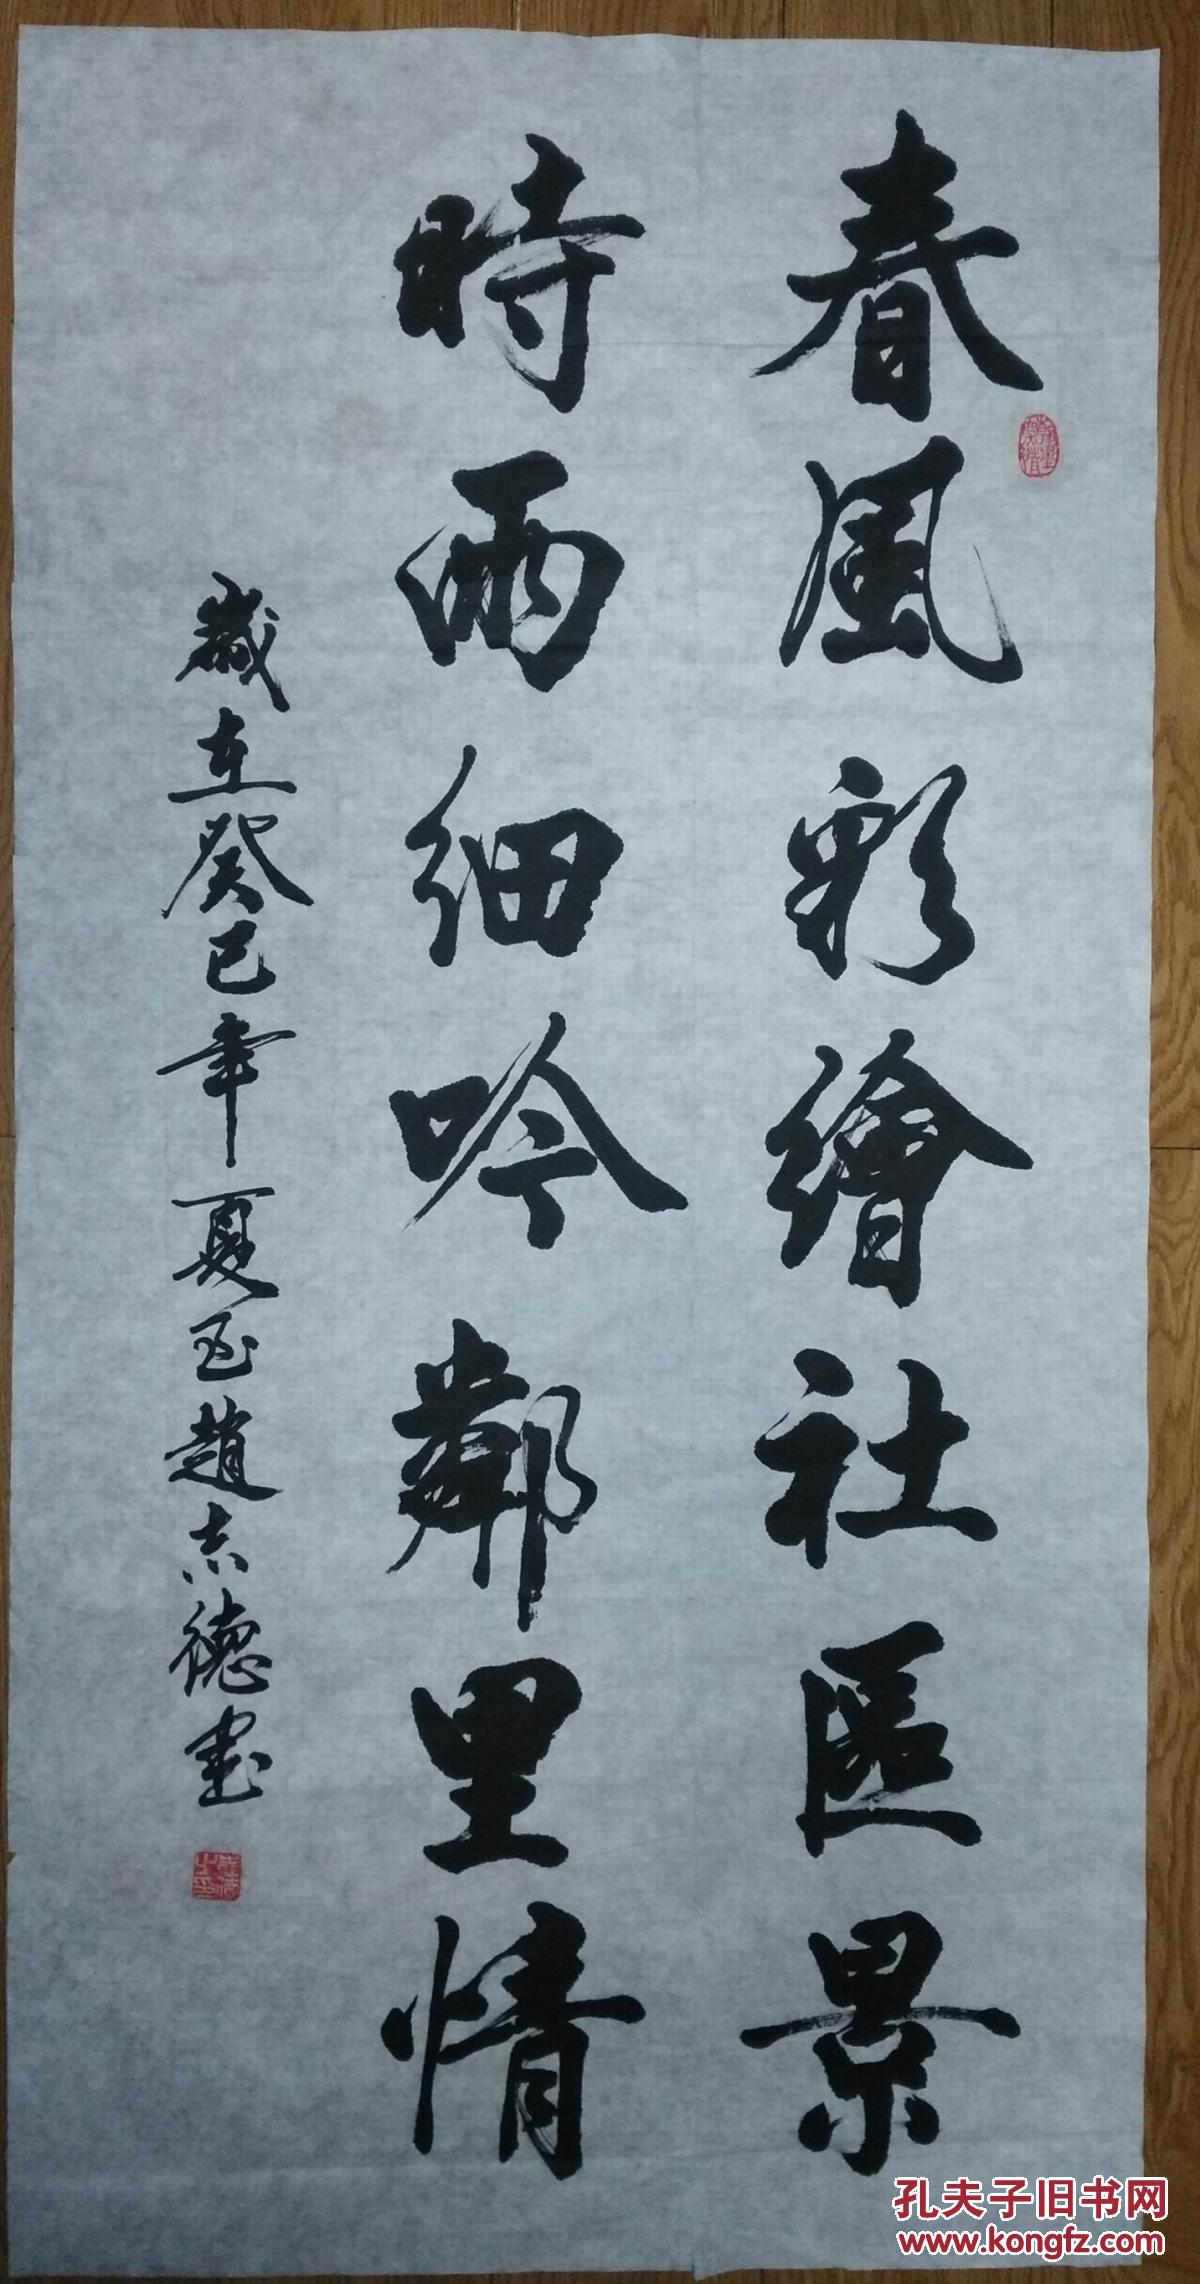 春風彩繪社區景
時雨細吟鄰里情
歲在癸巳年夏至趙志德書
孔夫子旧书网
www.kongfz.com